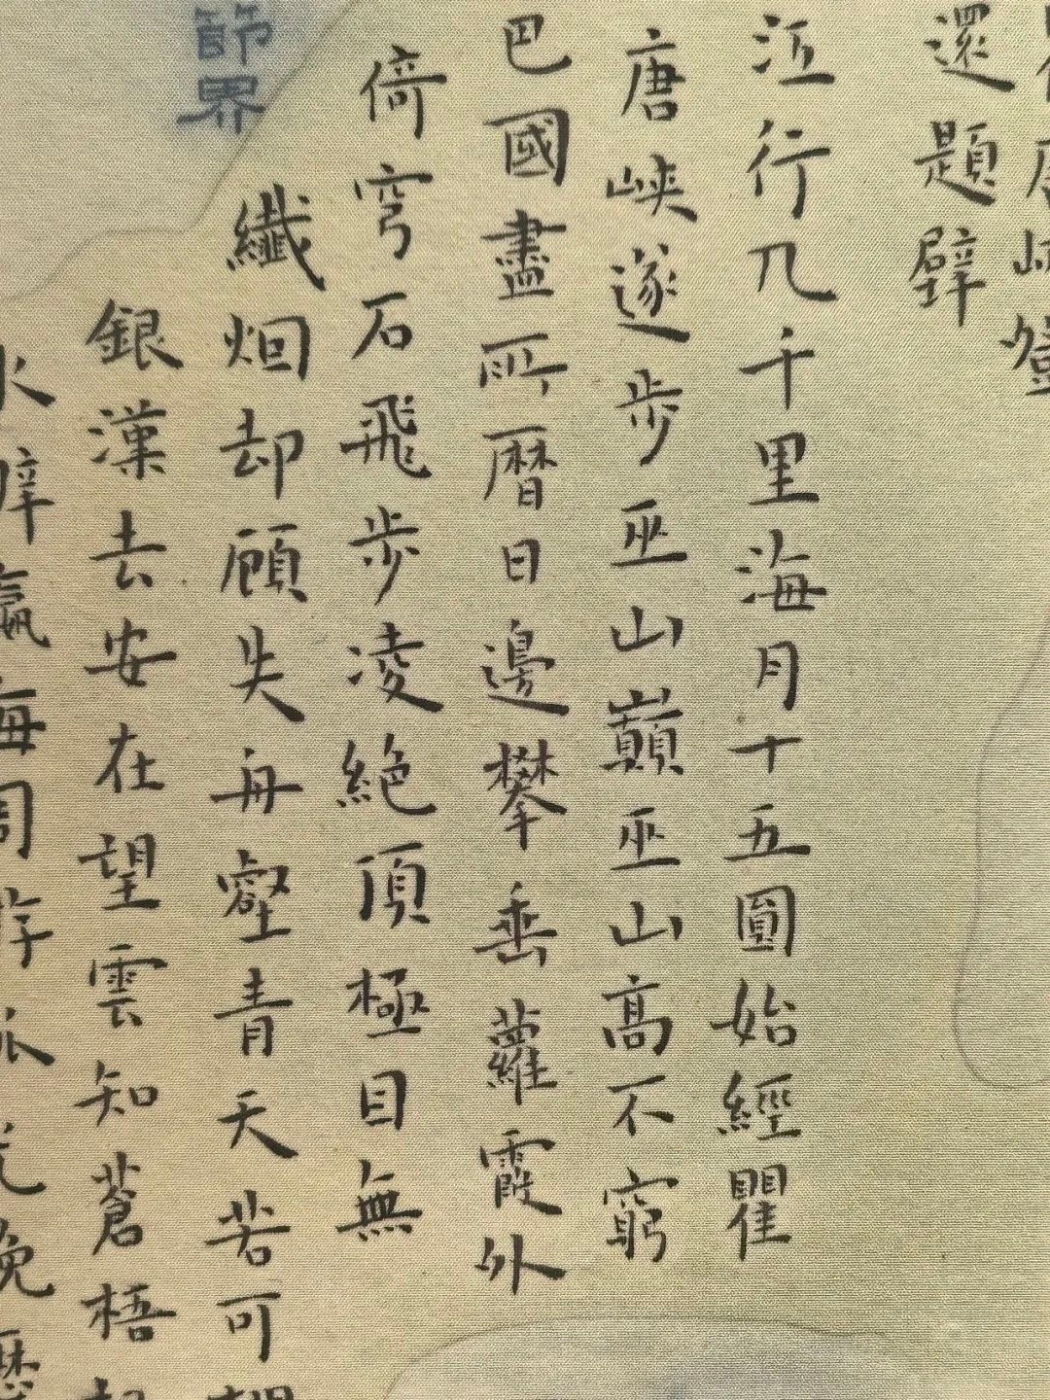 唐峽登
還題壁
江行几千里海月十五圓始經瞿
唐峽遂步巫山巔巫山高不窮
巴國盡所曆日邊攀垂蘿霞外
倚穹石飛步凌絶頂極目無
纖烟却顧失丹壑青天若可
銀漢去安在望雲知蒼梧
水辨瀛海周游孤光晚歷
節界